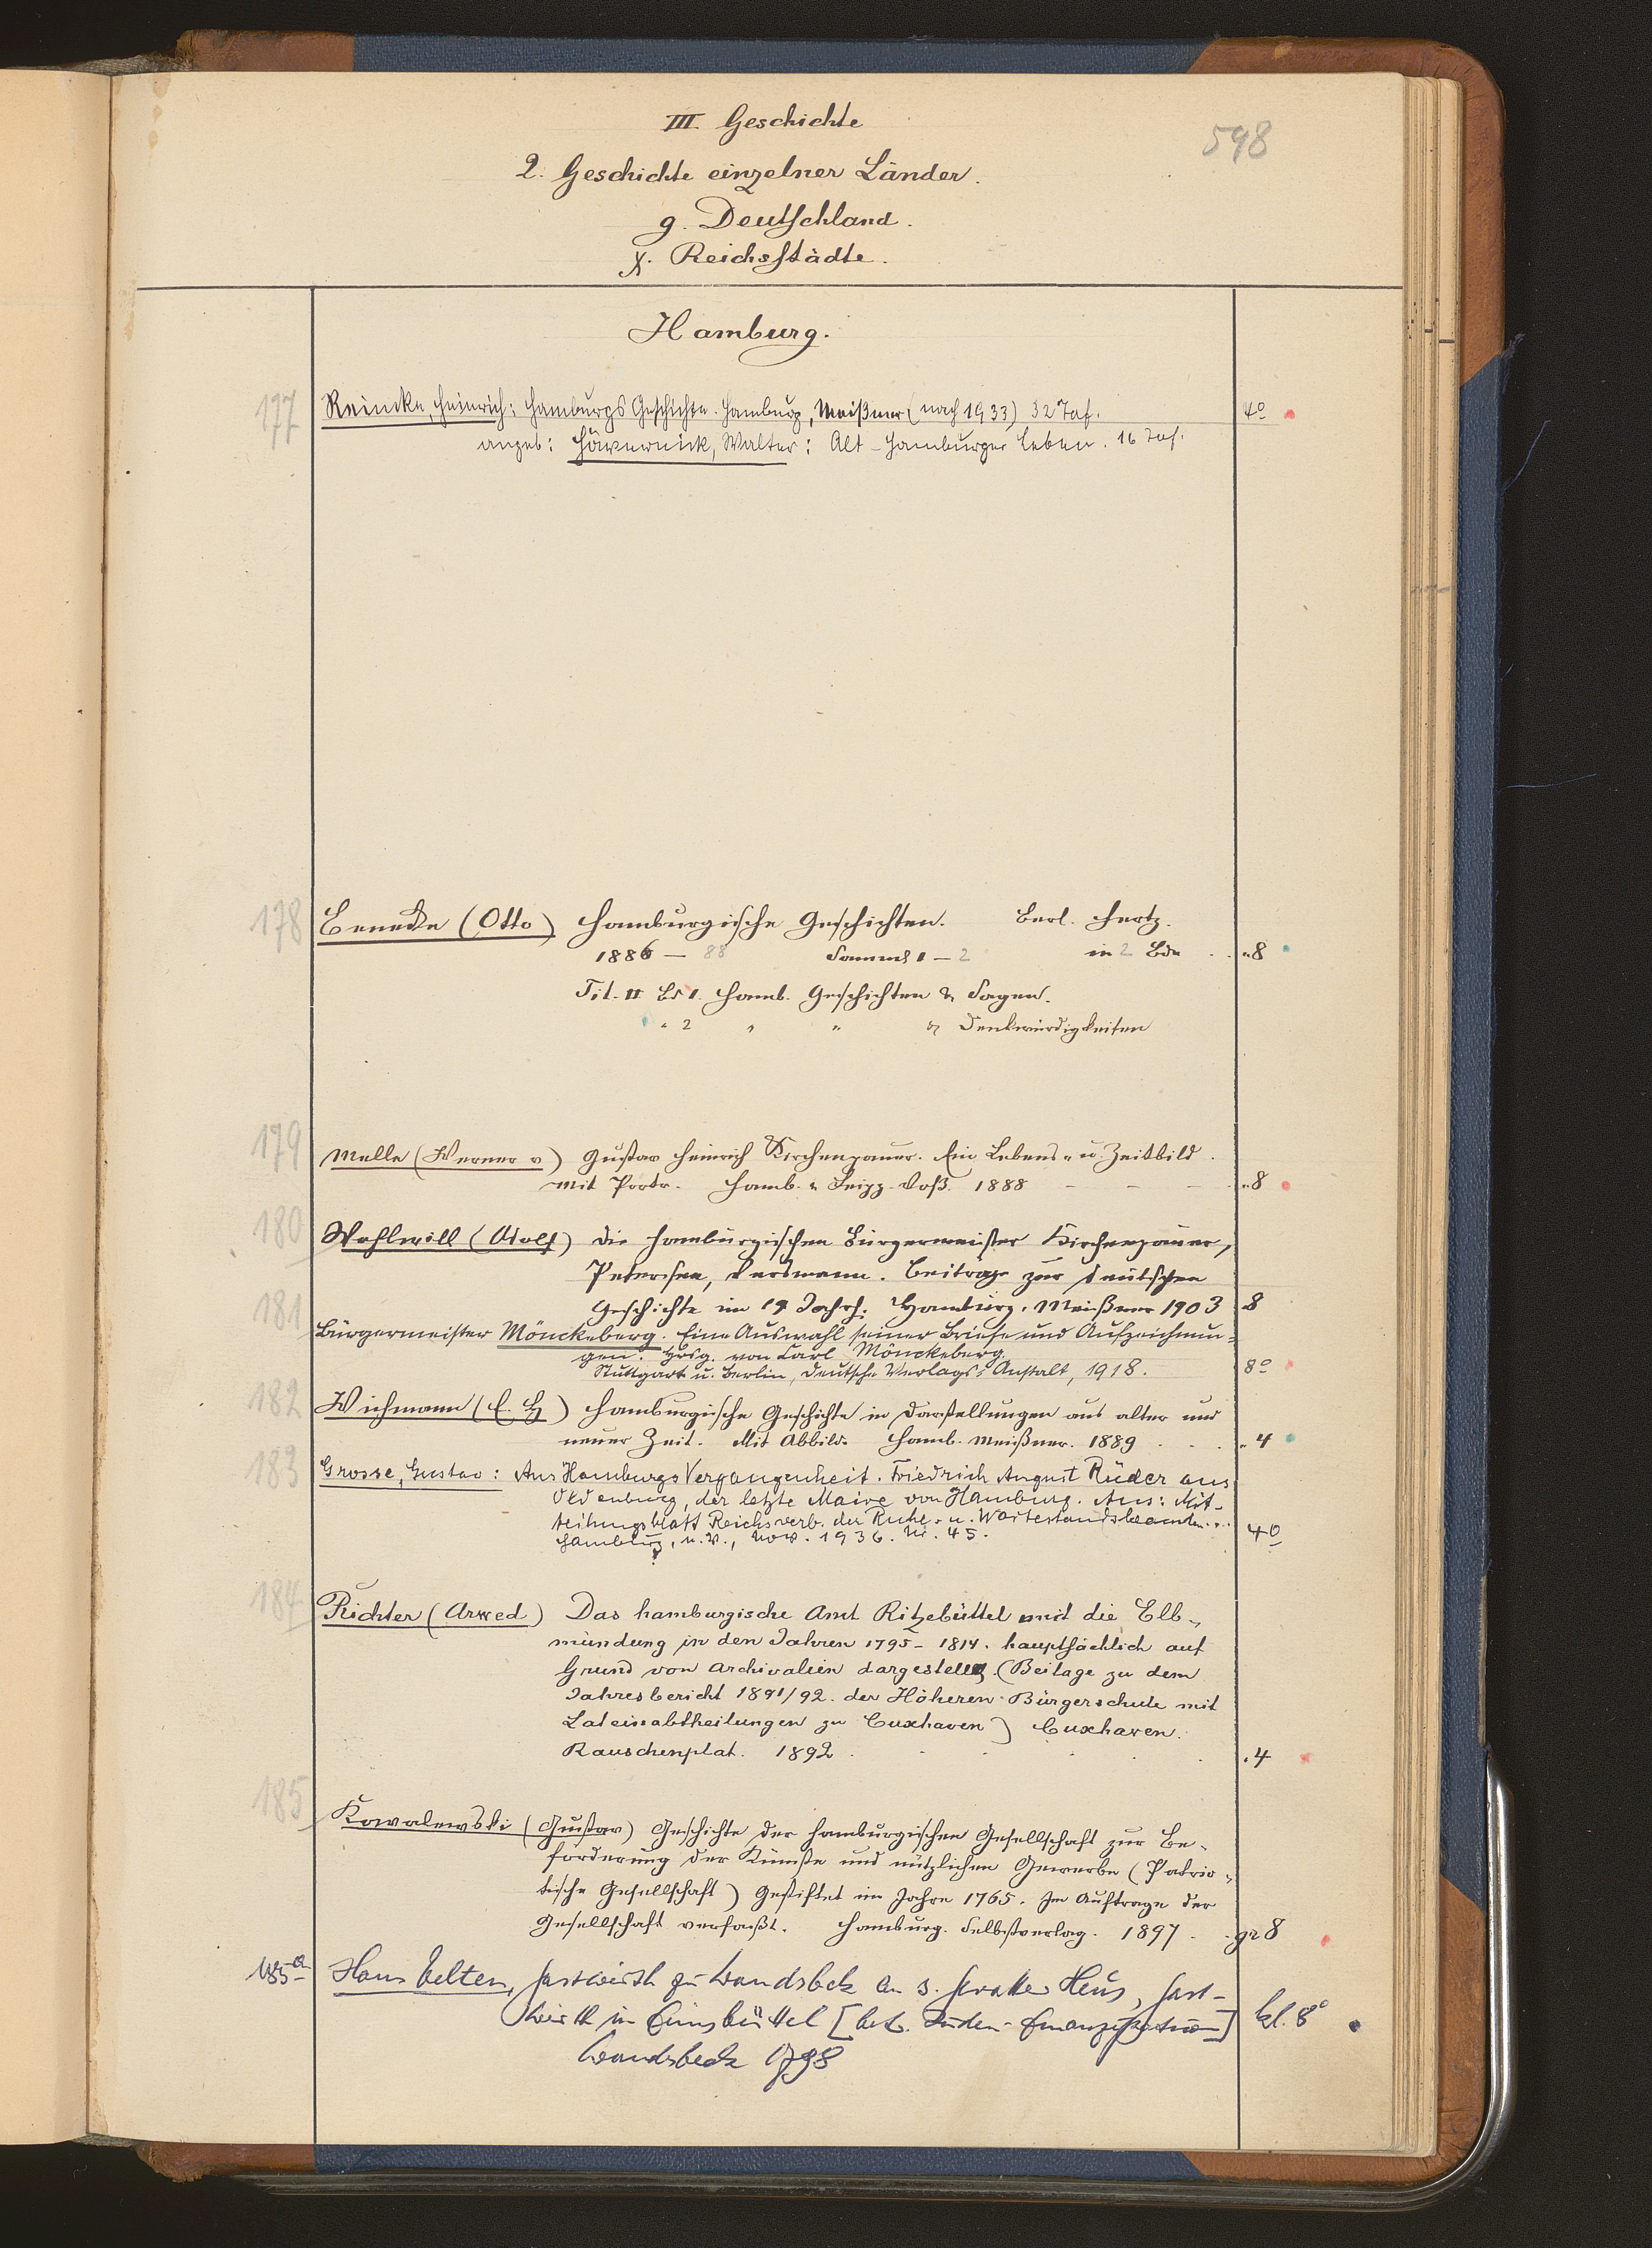 III. Geschichte
598
2. Geschichte einzelner Länder.
g. Deutschland.
γ. Reichsstädte.
Hamburg.
177 Reincke, Heinrich: Hamburgs Geschichte. Hamburg, Meißner (nach 1933) 32 Taf. 4º
angeb: Hävernick, Walter: Alt-Hamburger Leben. 16 Taf.
178 Beneke (Otto) Hamburgische Geschichten. Berl. Hertz.
1886 – 88 Samml 1 – 2 in 2 Bdn . . „8
Tit. II Bd 1. Hamb. Geschichten & Sagen.
„ 2 „ „ & Denkwürdigkeiten
179 Melle (Werner v) Gustav Heinrich Kirchenpauer. Ein Lebens- u. Zeitbild.
Mit Portr. Hamb. u. Leipz. Voß. 1888 – – – „8
180 Wohlwill (Adolf) Die hamburgischen Bürgermeister Kirchenpauer,
Petersen, Versmann. Beitrage zur deutschen
Geschichte im 19 Jahrh. Hamburg. Meißner 1903 8
181 Bürgermeister Mönckeberg. Eine Auswahl seiner Briefe und Aufzeichnun-
gen. Hrsg. von Carl Mönckeberg.
Stuttgart u. Berlin, Deutsche Verlags-Anstalt, 1918. 8º
182 Wichmann (E. H) Hamburgische Geschichte in Darstellungen aus alter und
neuer Zeit. Mit Abbild. Hamb. Meißner. 1889 . . . „4
183 Grosse, Gustav: Aus Hamburgs Vergangenheit. Friedrich August Rüder aus
Oldenburg, der letzte Maire von Hamburg. Aus: Mit-
teilungsblatt Reichsverb. der Ruhe- u. Wartestandsbeamten...
Hamburg, u. V., Nov. 1936. Nr. 45. 4º
184 Richter (Arwed) Das hamburgische Amt Ritzebüttel und die Elb-
mündung in den Jahren 1795 – 1814. hauptsächlich auf
Grund von Archivalien dargestellt. (Beilage zu dem
Jahresbericht 1891/92. der Höheren Bürgerschule mit
Lateinabtheilungen zu Cuxhaven) Cuxhaven.
Rauschenplat. 1892 . . . . . 4
185 Kowalewski (Gustav) Geschichte der hamburgischen Gesellschaft zur Be-
förderung der Künste und nützlichen Gewerbe (Patrio-
tische Gesellschaft) Gestiftet im Jahre 1765. Im Auftrage der
Gesellschaft verfaßt. Hamburg. Selbstverlag. 1897 . . gr 8
185a Hans Velten, Gastwirth zu Wandsbek an s. Gevatter Heus, Gast-
wirth in Eimsbüttel [betr. Juden-Emanzipation] kl. 8º
Wandsbeck 1798